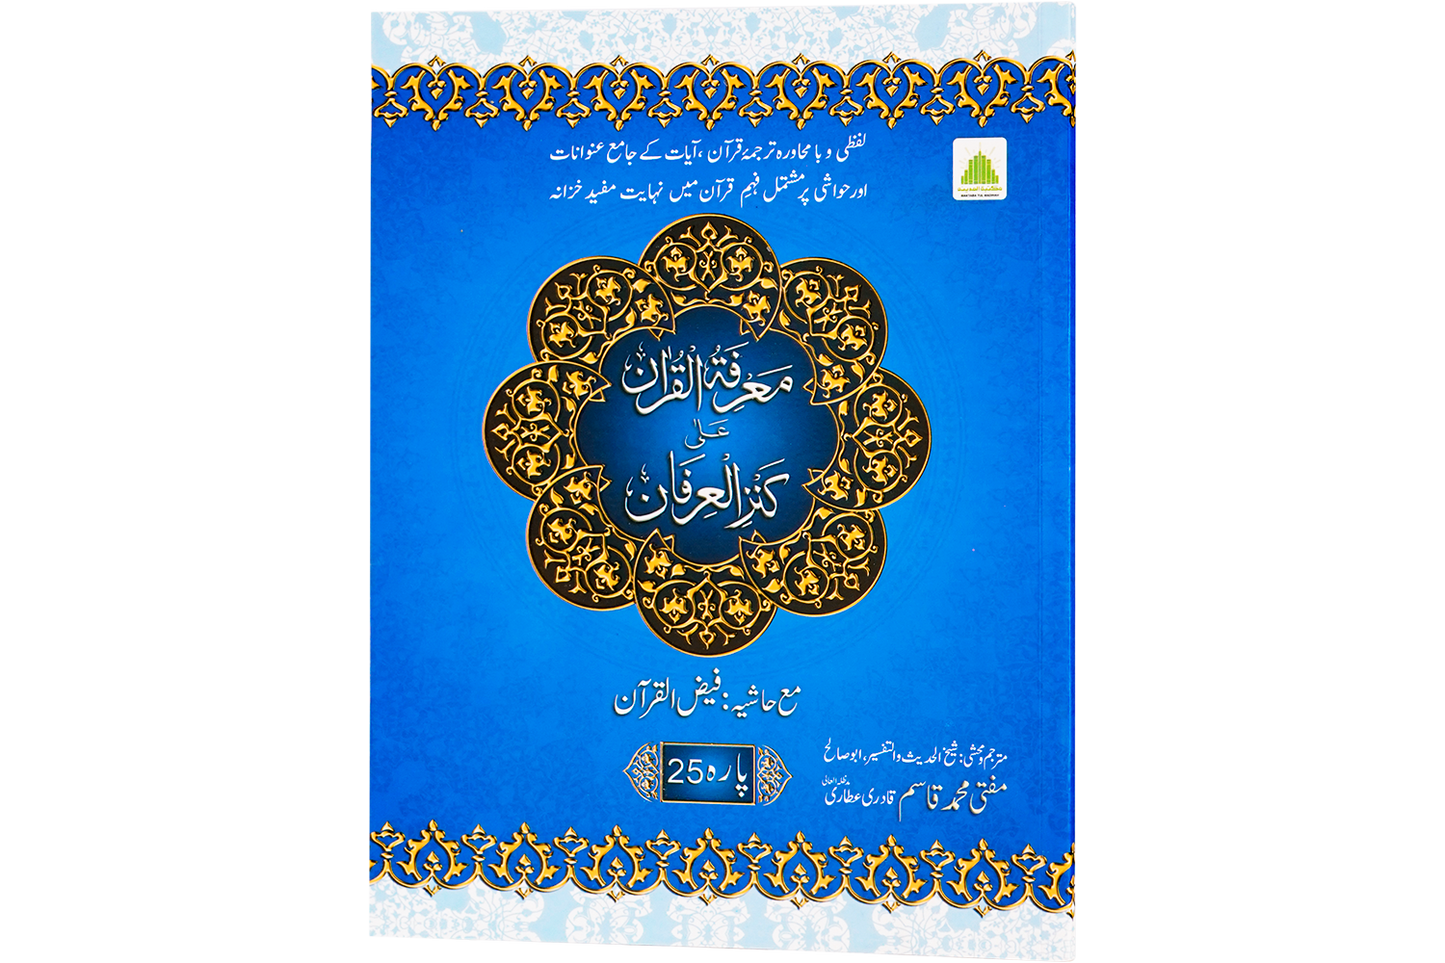 لفظی و با محاورہ ترجمۂ قرآن، آیات کے جامع عنوانات
اور حواشی پر مشتمل فہمِ قرآن میں نہایت مفید خزانہ
مکتبۃ المدینہ
MAKTABA TUL MADINAH
مَعْرِفَۃُ الْقُرْاٰن
عَلٰی
کَنْزِ الْعِرْفَان
مع حاشیہ: فیض القرآن
پارہ 25
مترجم و محشی: شیخ الحدیث والتفسیر، ابو صالح
مفتی محمد قاسم قادری عطاری مدظلہ العالی